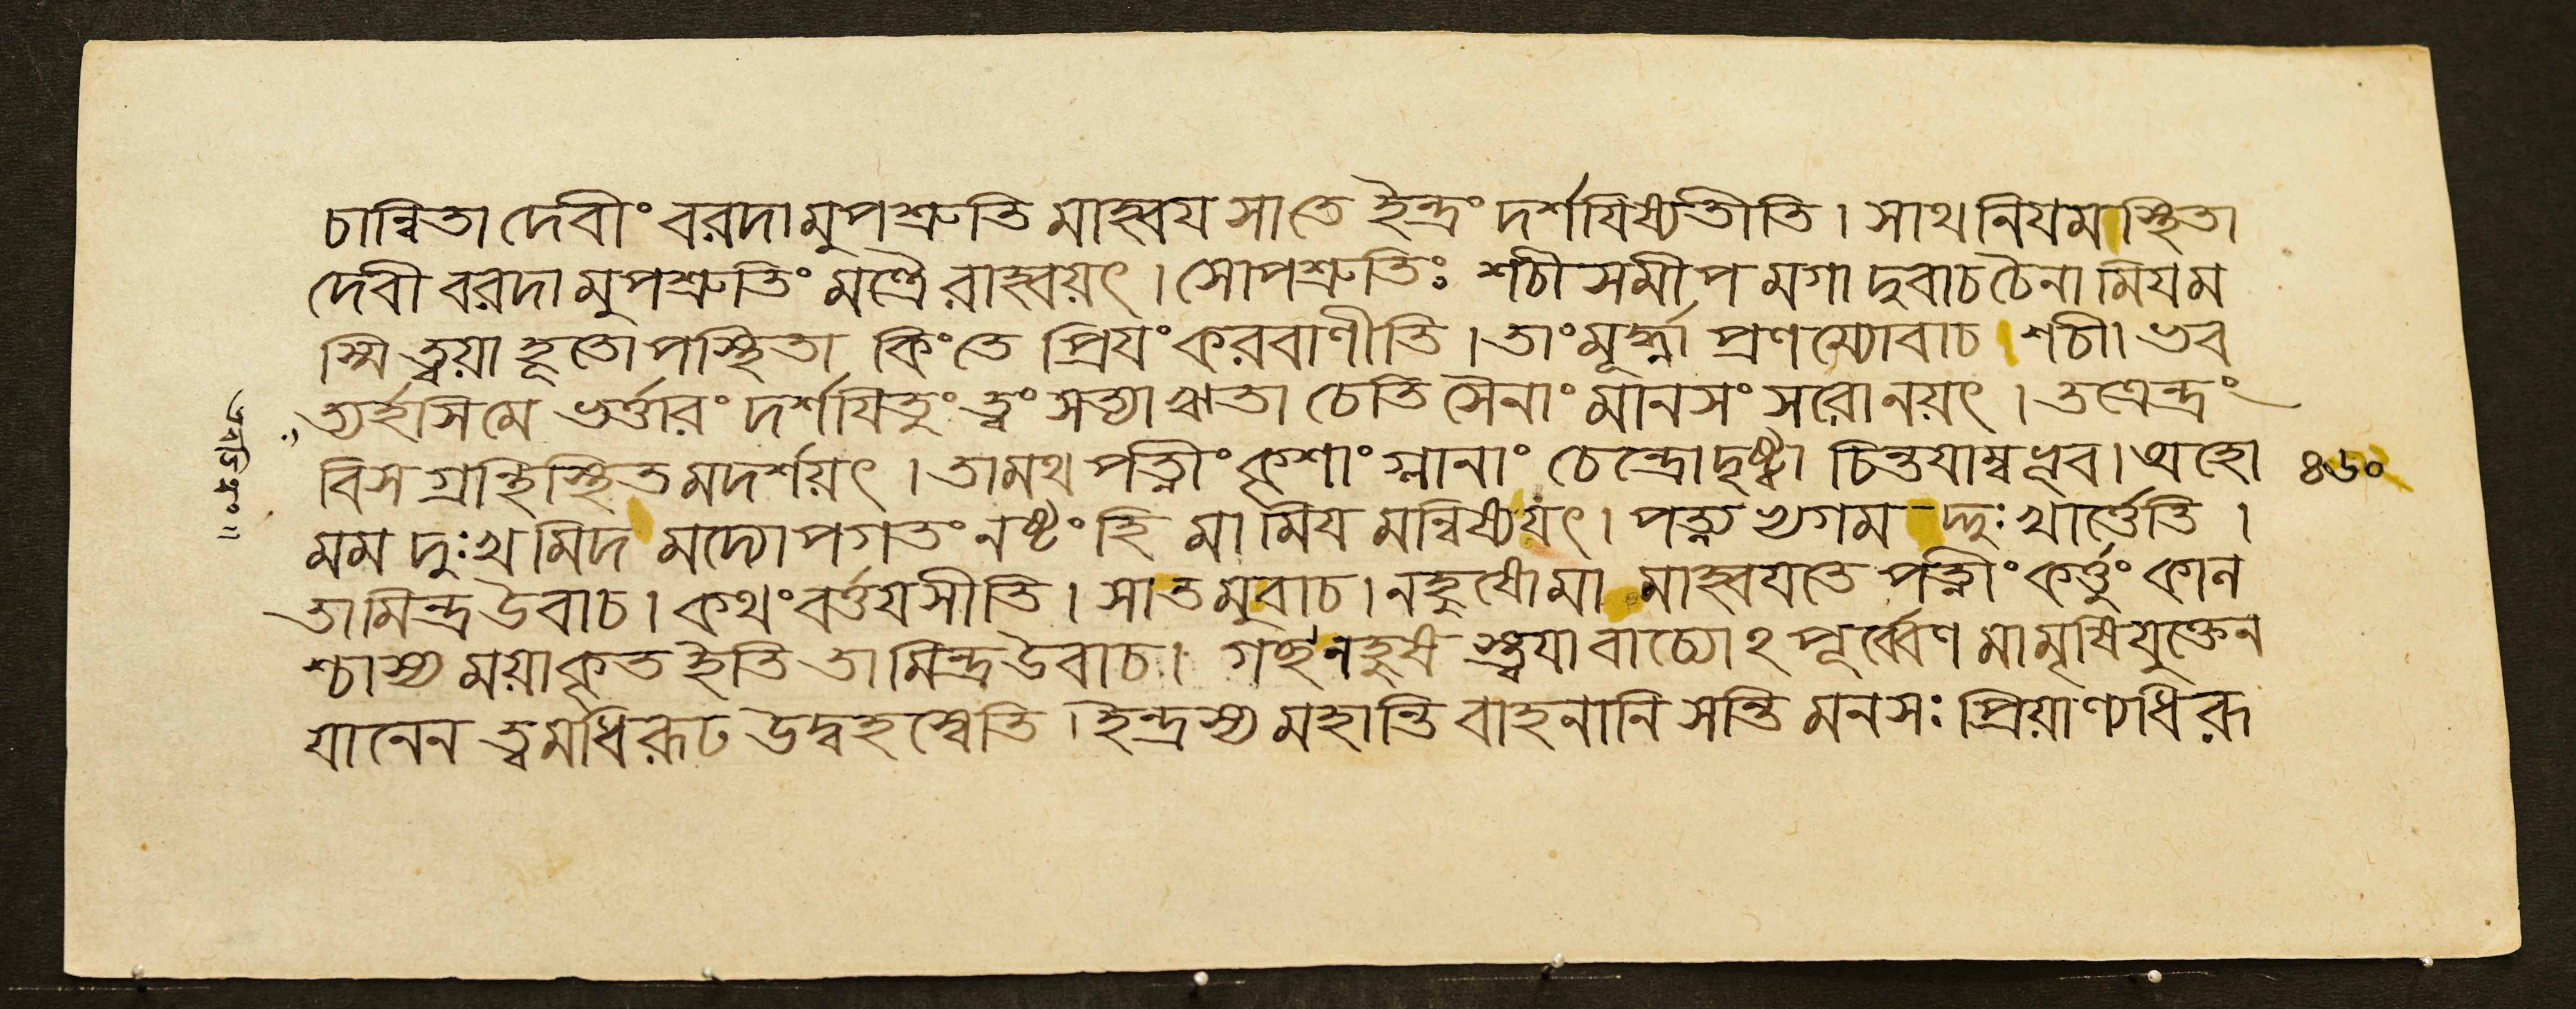 চান্বিতা দেবীং বরদামুপশ্রুতি মাহ্বয সাতে ইন্দ্রং দর্শযিষ্যতীতি । সাথ নিযমাস্থিতা
দেবী বরদা মুপশ্রুতিং মন্ত্রৈ রাহ্বয়ৎ । সোপশ্রুতিঃ শচী সমীপ মগা দুবাচ চৈনা মিযম
স্মি ত্বয়া হূতোপস্থিতা কিংতে প্রিযং করবাণীতি । তাং মূর্দ্ধ্না প্রণম্যোবাচ । শচী। ভব
ত্যর্হসি মে ভর্ত্তারং দর্শযিতুং ত্বং সত্যা ঋতা চেতি সৈনাং মানসং সরোনয়ৎ । তত্রেন্দ্রং
বিস গ্রন্থি স্থিত মদর্শয়ৎ । তামথ পত্নীং কৃশাং গ্লানাং চেন্দ্রোদৃষ্ট্বা চিন্তযাম্বভূব । অহো ৪৬০
মম দুঃখ মিদ মদ্যোপগতং নষ্টং হি মা মিয মন্বিষ্যয়ৎ । পত্ন্য ভ্যগম দ্দুঃখার্ত্তেতি ।
তামিন্দ্র উবাচ । কথং বর্ত্তযসীতি । সা তমুবাচ । নহুষোমা মাহ্বযতে পত্নীং কর্ত্তুং কান
শ্চাস্য ময়াকৃত ইতি তামিন্দ্র উবাচ । গচ্ছ নহুষ স্ত্বযা বাচ্যোঽপূর্ব্বেণ মামৃষিযুক্তেন
যানেন ত্বমধিরূঢ উদ্বহস্বেতি । ইন্দ্রস্য মহান্তি বাহনানি সন্তি মনসঃ প্রিয়াণ্যধিরূ